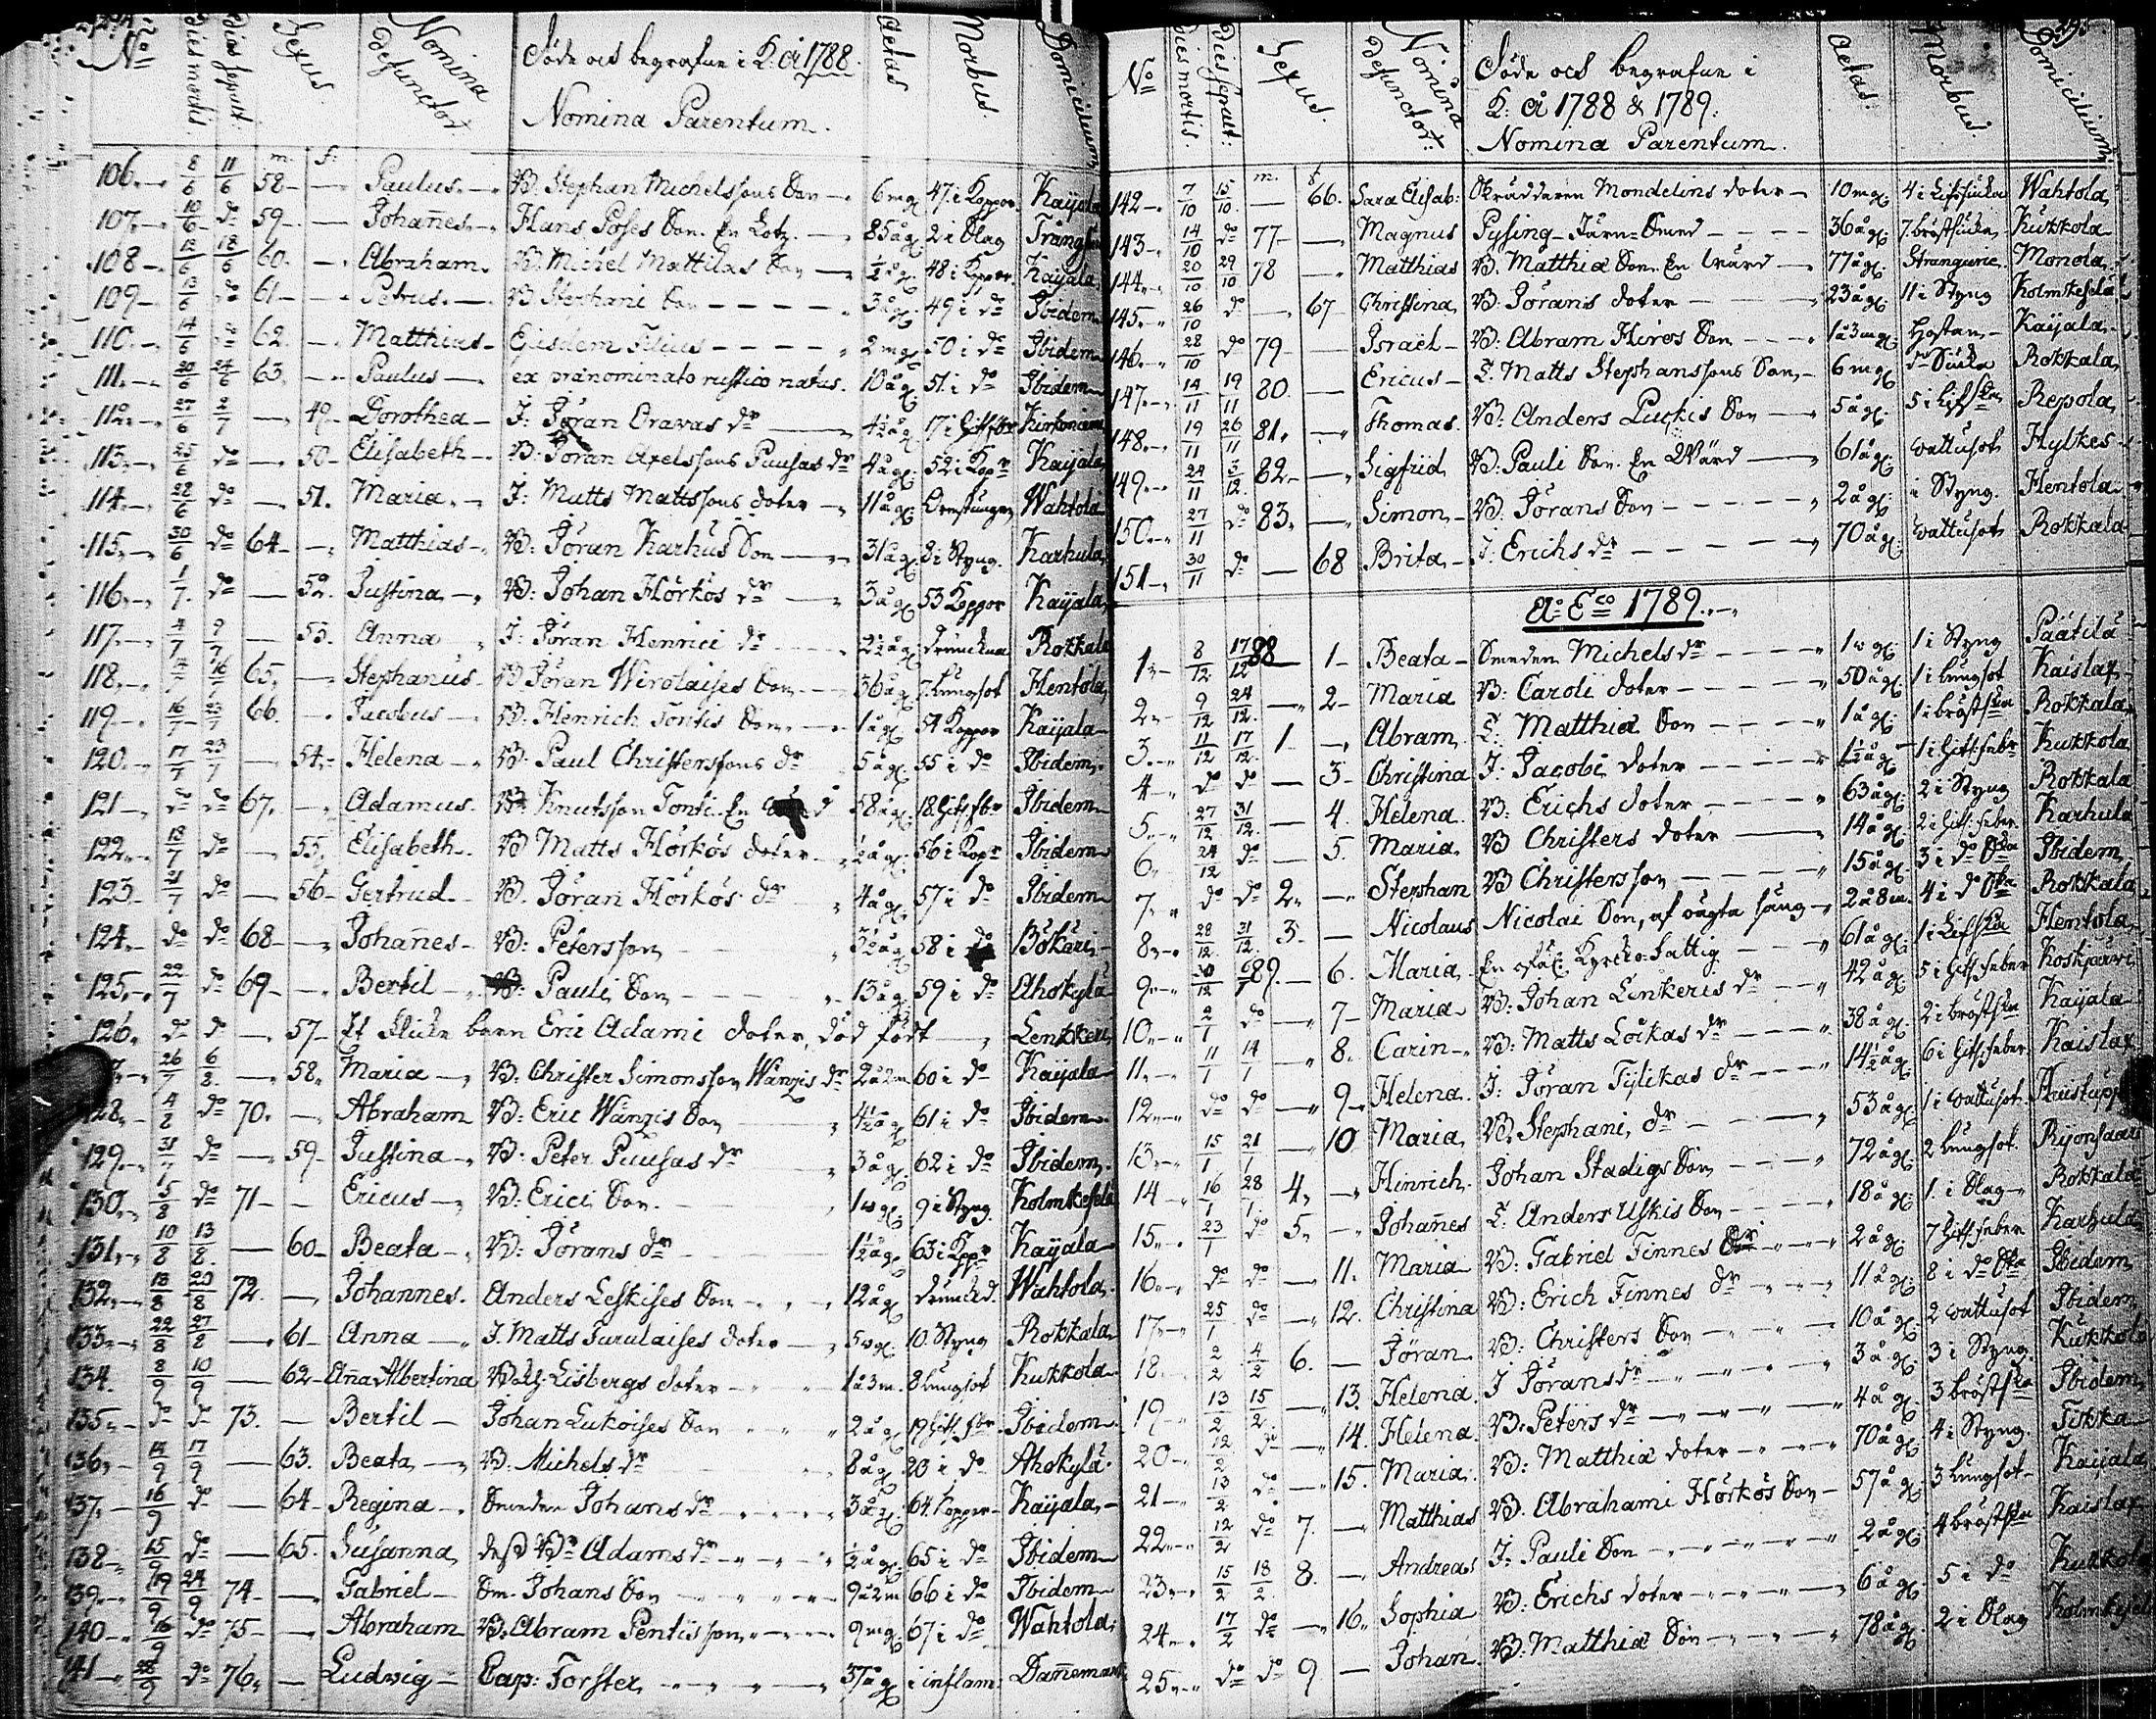 No Dies mortis. Dies sepult: Sexus. Nomina defunctor. Döde och begrafne i K: åi 1788. Nomina Parentum. Aetas Morbus Domicilium
m. f:
106. 8/6 11/6 58 Paulus B. Stephan Michelssons Son 6 mgl 47 i Koppor Kayala
107. 10/6 do 59 Johannes Hans Poses Son. En Lotz. 85 å gl. 2 i Slag Trångs
108 13/6 18/6 60. Abraham. B. Michel Mattilas Son 1/2 å gl 48 i Koppor. Kayala
109 13/6 do 61 Petrus. B Stephani Son 3 å gl. 49 i do Ibidem
110. 14/6 do 62. Matthias Ejusdem Filius 2 mgl 50 i do Ibidem
111. 20/6 24/6 63. Paulus ex prænominato rustico natus. 10 å gl. 51. i do Ibidem
112. 27/6 2/7 49 Dorothea I: Jöran Oravas dr 4 1/2 å gl 17 i Hitt fbr
113. 25/6 do 50 Elisabeth B. Jöran Axelssons Puusas dr 4 å gl. 52 i Kopr Kayala
114. 28/6 do 51. Maria. I: Matts Mattssons doter 11 å gl. Wahtola
115. 30/6 do 64 Matthias B: Jöran Karhus Son 31 å gl. 8 i Styng. Karhula
116. 1/7. do 52. Justina B: Johan Hörkös dr 3 å gl. 53 Koppor Kayala
117. 4/7 9/7 53. Anna I: Jöran Henrici dr 2 1/2 å gl. Drunknad Rokkala
118. 14/7 16/7 65. Stephanus B Jöran Wirolaises Son 36 å gl 7. Lungsot Hentola
119. 16/7 23/7 66. Jacobus B. Henrich Tontis Son 1 å gl 54 Koppor Kayala
120. 17/7 23/7 54. Helena B. Paul Christerssons dr 5 å gl. 55 i do Ibidem
121 do do 67. Adamus. B. Knutsson Tonti. En 58 å gl. 18. Hitt fbr Ibidem
122. 18/7 do 55. Elisabeth B Matts Hörkös doter 1/2 å gl. 56 i Kopr Ibidem
123 21/7 do 56 Gertrud B. Jöran Hörkös dr 4 å gl. 57 i do Ibidem
124. do do 68 Johannes B: Petersson 3 1/2 å gl. 58 i do Bökari
125. 22/7 do 69 Bertil B: Pauli Son 13 å gl. 59 i do Ahokylä
126. do do 57 Et Flicke barn Eric Adami doter, död född Lenkkeri
26/7 6/8. 58. Maria B: Christer Simonsson Wänzis dr 2 å 2 m 60 i do Kayala
128. 4/8 do 70. Abraham B: Eric Wänzis Son 4 1/2 å gl 61 i do Ibidem
129. 31/7 do 59 Justina B: Peter Puusas dr 3 å gl. 62 i do Ibidem.
130. 5/8 do 71 Ericus B: Erici Son. 1 w gl. 9 i Styng. Kolmikesälä
131. 10/8 13/8. 60 Beata B: Jörans dr 1 1/2 å gl. 63 i Kopr Kayala
132. 18/8 20/8 72. Johannes. Anders Leskises Son 12 å gl Drunckd. Wahtola.
133. 22/8 27/8 61 Anna I. Matts Turulaises doter 5 w gl. 10 Styng Rokkala
134. 8/9 10/9 62 Anna Albertina Lisbergs doter 1 å 3 m. 8 Lungsot Kukkola
135. do do 73. Bertil Johan Lukoises Son 2 å gl 19 Hitt. fbr Ibidem
136. 14/9 17/9 63. Beata B: Michels dr 8 å gl 20 i do Ahokylä
137. 16/9 do 64 Regina Smeden Johans dr 3 å gl. 64. Koppor Kayala
138. 15/9 do 65. Susanna Adams dr 1/2 å gl. 65 i do Ibidem
139. 19/9 24/9 74 Gabriel Sm. Johans Son 9 å 2 m 66 i do Ibidem
140 16/9 do 75 Abraham B: Abram Pentisson 9 mgl 67 i do Wahtola.
141 28/9 do 76. Ludvig Cap: Forster 37 å gl i inflam: Dannemark
No Dies mortis. Dies sepult: Sexus. Nomina defunctor: Döde och begrafne i K: åi 1788 & 1789: Nomina Parentum. Aetas: Morbus Domicilium
m. f
142 7/10 15/10. 66. Sara Elisab: Skräddaren Mondelins doter 10 mgl. 4 i Lifsiuka Wahtola
143 14/10 do 77 Magnus Pysing Järn-Smed 36 å gl. 7. bröstsiuka Kukkola
144. 20/10 29/10 78 Matthias B. Matthiæ Son. En Wärd 77 å gl. Strangurie. Monola
145. 26/10 do 67 Christina B. Jörans doter 23 å gl. 11 i Styng Kolmikesälä
146. 28/10 do 79 Israël B: Abram Hiros Son 1 å 3 mgl. Hostan Kayala
147. 14/11 19/11 80. Ericus L. Matts Stephanssons Son 6 mgl do Siuka Rokkala
148. 19/11 26/11 81. Thomas. B: Anders Luckis Son 5 å gl. 5 i Lifska Repola
149. 24/11 3/12. 82 Sigfrid B. Pauli Son. En Wärd 61 å gl. wattusot Hylkes
150. 27/11 do 83. Simon B. Jörans Son 2 å gl. i Styng. Hentola
151 30/11 do 68 Brita I: Erichs dr 70 å gl. wattusot Rokkala
Ao: Eco 1789.
1 8/12 17/12 88 1 Beata Smeden Michels dr 1 w gl. 1 i Styng Päätilä
2 9/12 24/12. 2 Maria B: Caroli doter 50 å gl. 1 i Lungsot Kaislax
3. 11/12 17/12. 1 Abram L. Matthiæ Son 1 å gl. 1 i bröstska Rokkala
4 do do 3 Christina I: Jacobi doter 1 1/2 å gl 1 i Hitt:febr Kukkola
5. 27/12 31/12. 4. Helena. B: Erichs doter 63 å gl. 2 i Styng Rokkala
6. 24/12 do 5. Maria. B Christers doter 14 å gl. 2 i Hitt:feber Karhula
7. do do 2. Stephan B Christersson 15 å gl. 3 i do Ska Ibidem
8. 28/12. 31/12. 3. Nicolaus Nicolai Son, af oägta säng 2 å 8 m. 4 i do Ska Rokkala
9 30/12 6/1 89. 6. Maria En Kyrcko-Fattig 61 å gl. 1 i Lifska Hentola
10. 2/1 do 7 Maria B: Johan Linkeris dr 42 å gl. 5 i Hitt:feber Koskjärvi
11. 11/1 14/1 8. Carin B: Matts Loikas dr 38 å gl. 2 i bröstska Kayala
12. do do 9 Helena. I: Jöran Tylikas dr 14 1/2 å gl. 6 i Hitt:feber Kaislax
13. 15/1 21/1 10 Maria B. Stephani dr 53 å gl. 1 i Wattusot
14 16/1 28/1. 4. Hinrich Johan Stadigs Son 72 å gl. 2 Lungsot
15. 23/1 do 5. Johannes L. Anders Uskis Son 18 å gl. 1. i Slag Rokkala
16. do do 11. Maria B: Gabriel Finnes Dr 2 å gl. 7 Hitt:feber Karhula
17. 25/1 do 12. Christina B: Erich Finnes dr 11 å gl. 8 i do Ska Ibidem
18. 2/2 4/2 6. Jöran B: Christers Son 10 å gl. 2 wattusot Ibidem
19 13/2 15/2. 13. Helena. I Jörans dr 3 å gl. 3 i Styng. Kukkola
20 12/2 do 14. Helena. B: Peters dr 4 å gl. 3 bröstska Ibidem
21 13/2 do 15. Maria. B: Matthiæ doter 70 å gl. 4 i Styng. Tikka
22. 12/2 do 7. Matthias B. Abrahami Hörkös Son 57 å gl. 3 Lungsot Kayala
23. 15/2 18/2. 8. Andreas I: Pauli Son 2 å gl. 4 bröstska Kaislax
24. 17/2 do 16. Sophia B: Erichs doter 6 å gl. 5 i do Kukkola
25. do do 9 Johan B: Matthiæ Son 78 å gl. 2 i Slag Kolmikesälä